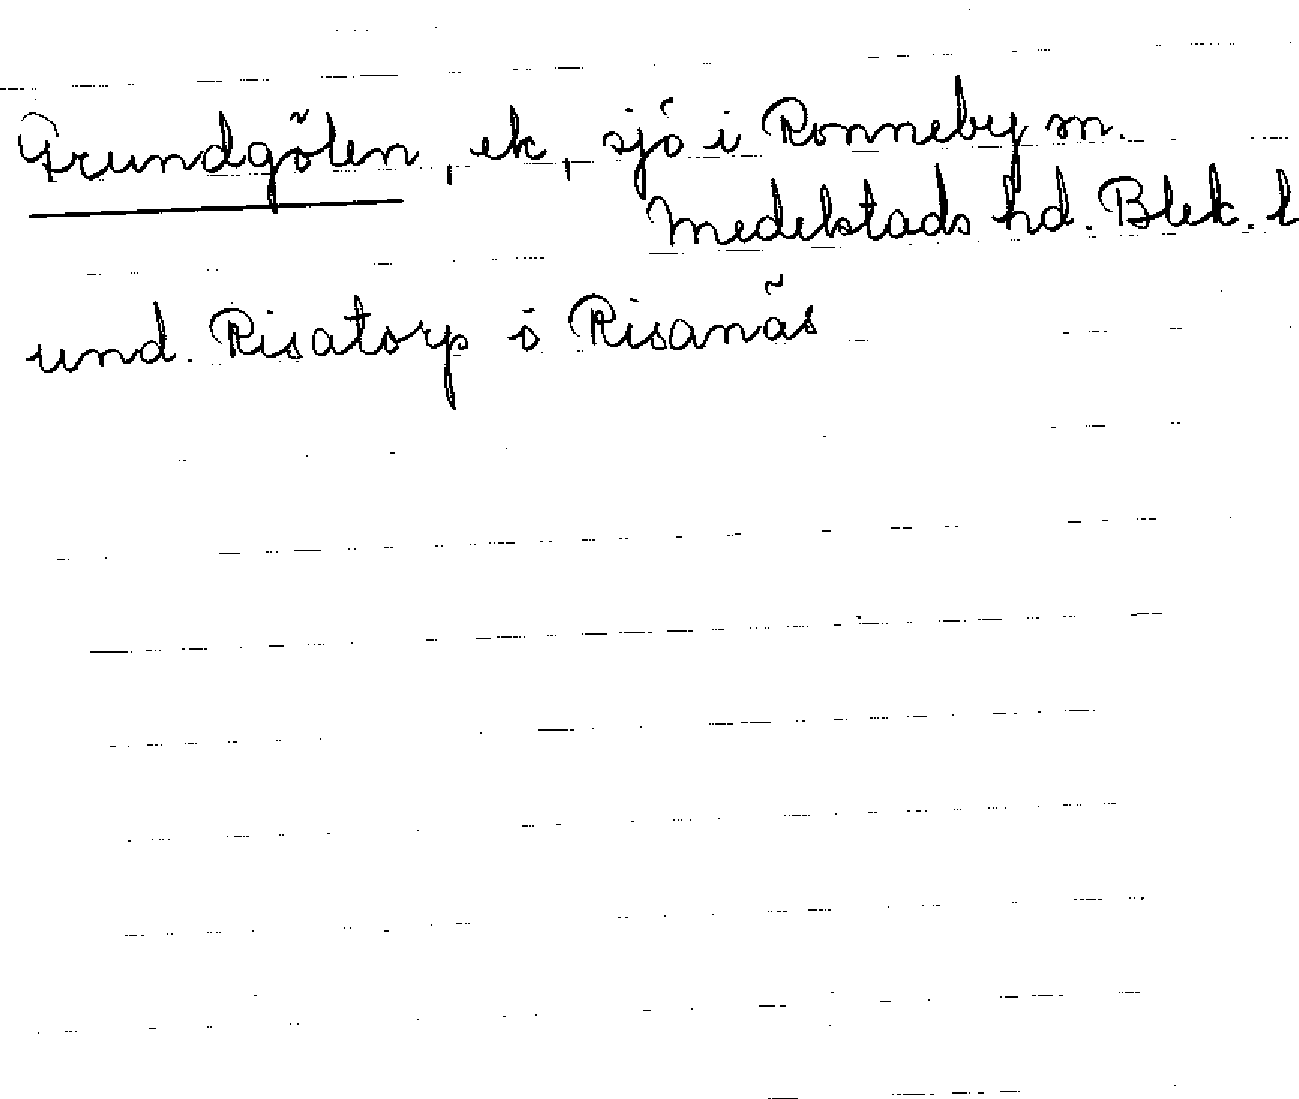 Grundgölen, ek, sjö i Ronneby sn.
Medelstads hd. Blek. l
und. Risatorp o Risanäs